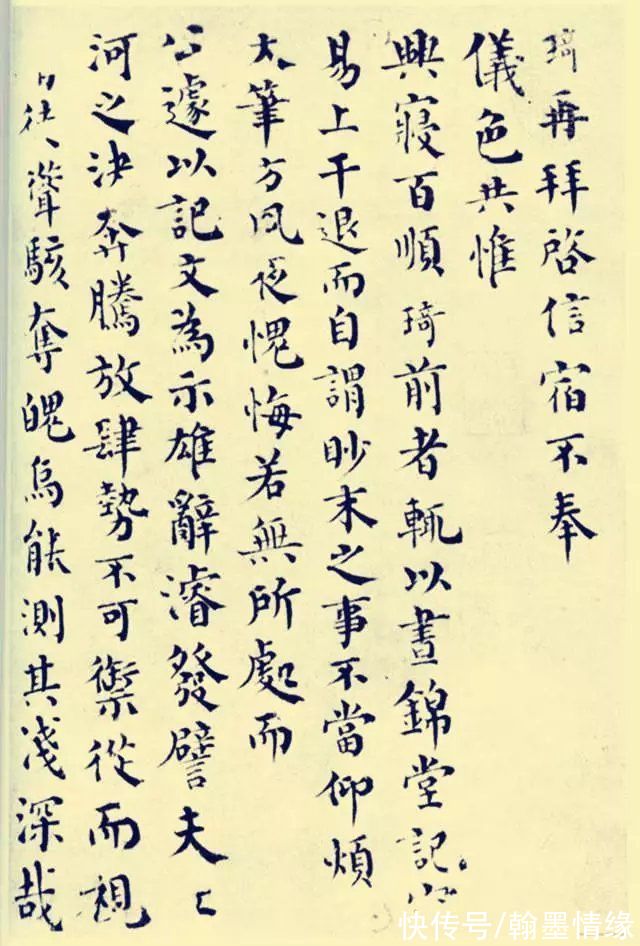 琦再拜啓信宿不奉
儀色共惟
興寢百順琦前者輒以晝錦堂記
易上干退而自謂眇末之事不當仰煩
大筆方夙夜愧悔若無所處而
公遽以記文為示雄辭濬發譬夫
河之決奔騰放肆勢不可禦從而視
徒聳駭奪魄烏能測其淺深哉
快传号/翰墨情缘